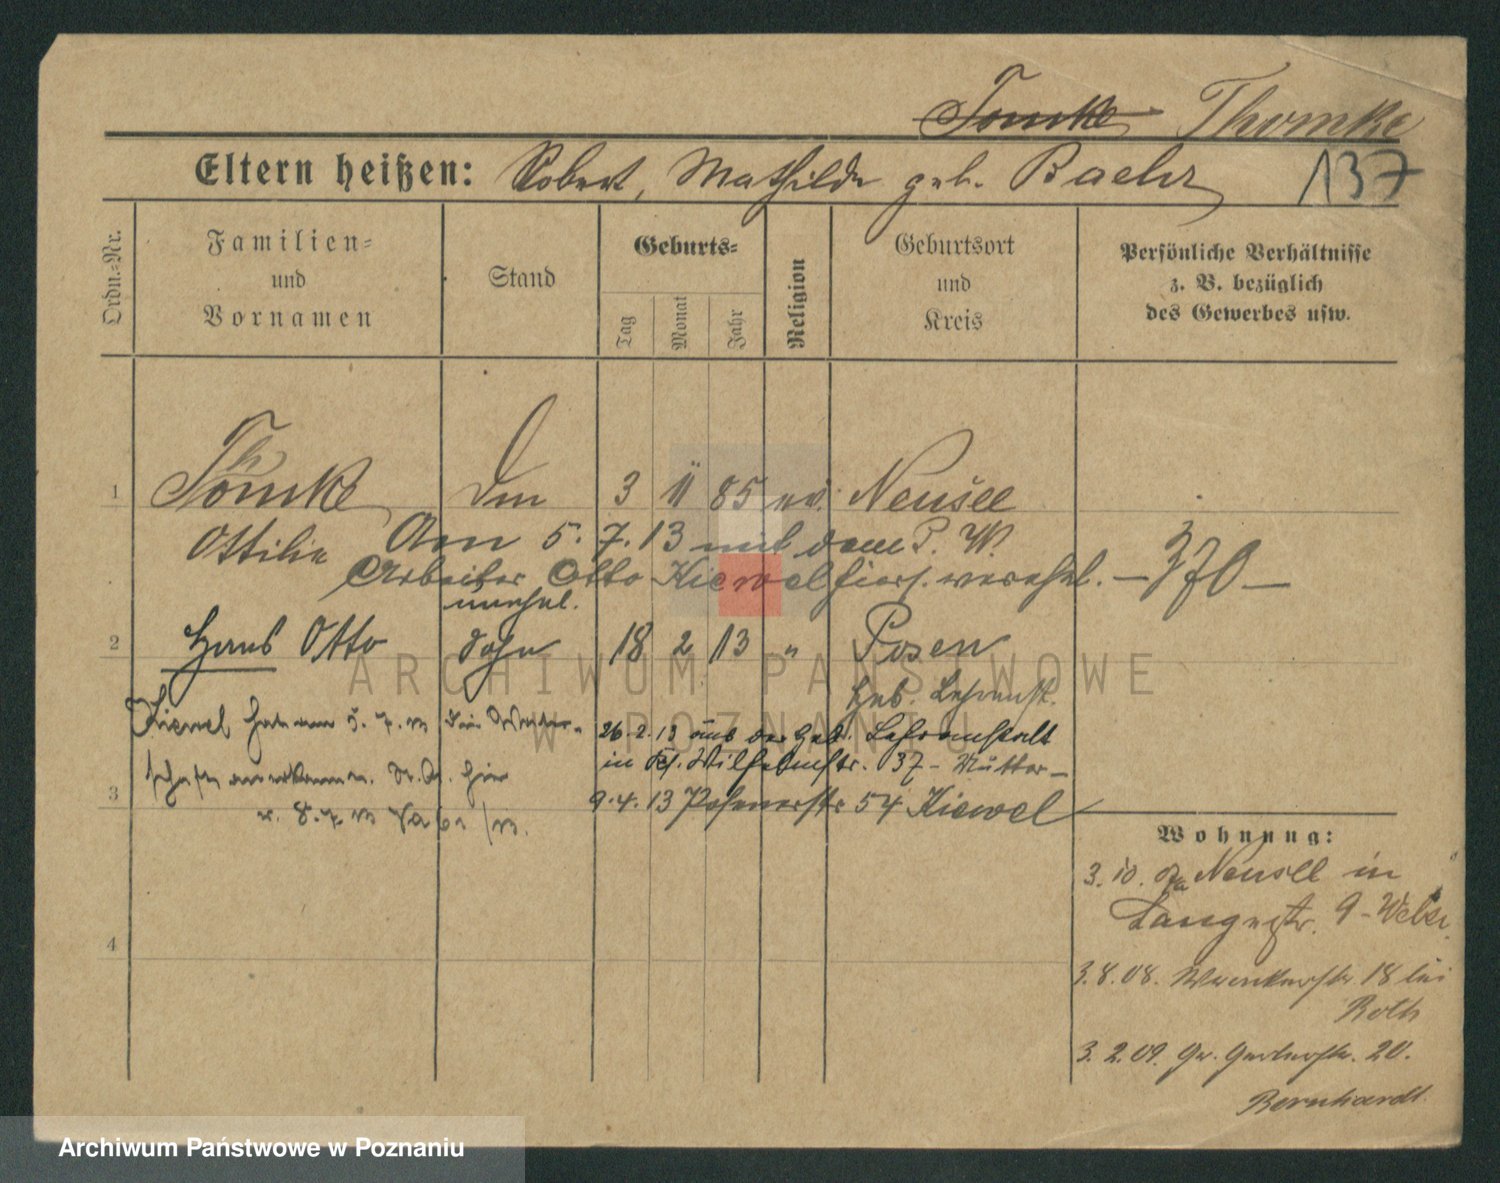 Tomke Thomke
Eltern heißen: Robert, Mathilde geb. Baehr 137
Ordn.=Nr.
Familien=
und
Vornamen
Stand
Geburts=
Tag
Monat
Jahr
Religion
Geburtsort
und
Kreis
Persönliche Verhältnisse
z. B. bezüglich
des Gewerbes usw.
Th
1 Tomke 3 11 85 ev. Neusee
Ottilie Am 5. 7. 13 mit dem P. W.
Arbeiter Otto Kiewel hiers. verehel. — 370 —
unehel.
2 Hans Otto Sohn 18 2 13 " Posen
Heb. Lehranst.
Kiewel hat am 5. 7. 13 die Vater-
26. 2. 13 aus der Heb. Lehranstalt
schaft anerkannt. St. A. hier
in Wilhelmstr. 37 - Mutter -
3
9. 4. 13 Posenerstr 54 Kiewel
v. 8. 7. 13
Wohnung:
3. 10. Neusee in
Langestr. 9 -
4
3. 8. 08. 18 bei
Roth
3. 2. 09. Gr. Gerberstr. 20.
Bernhardt
ARCHIWUM PAŃSTWOWE
W POZNANIU
Archiwum Państwowe w Poznaniu